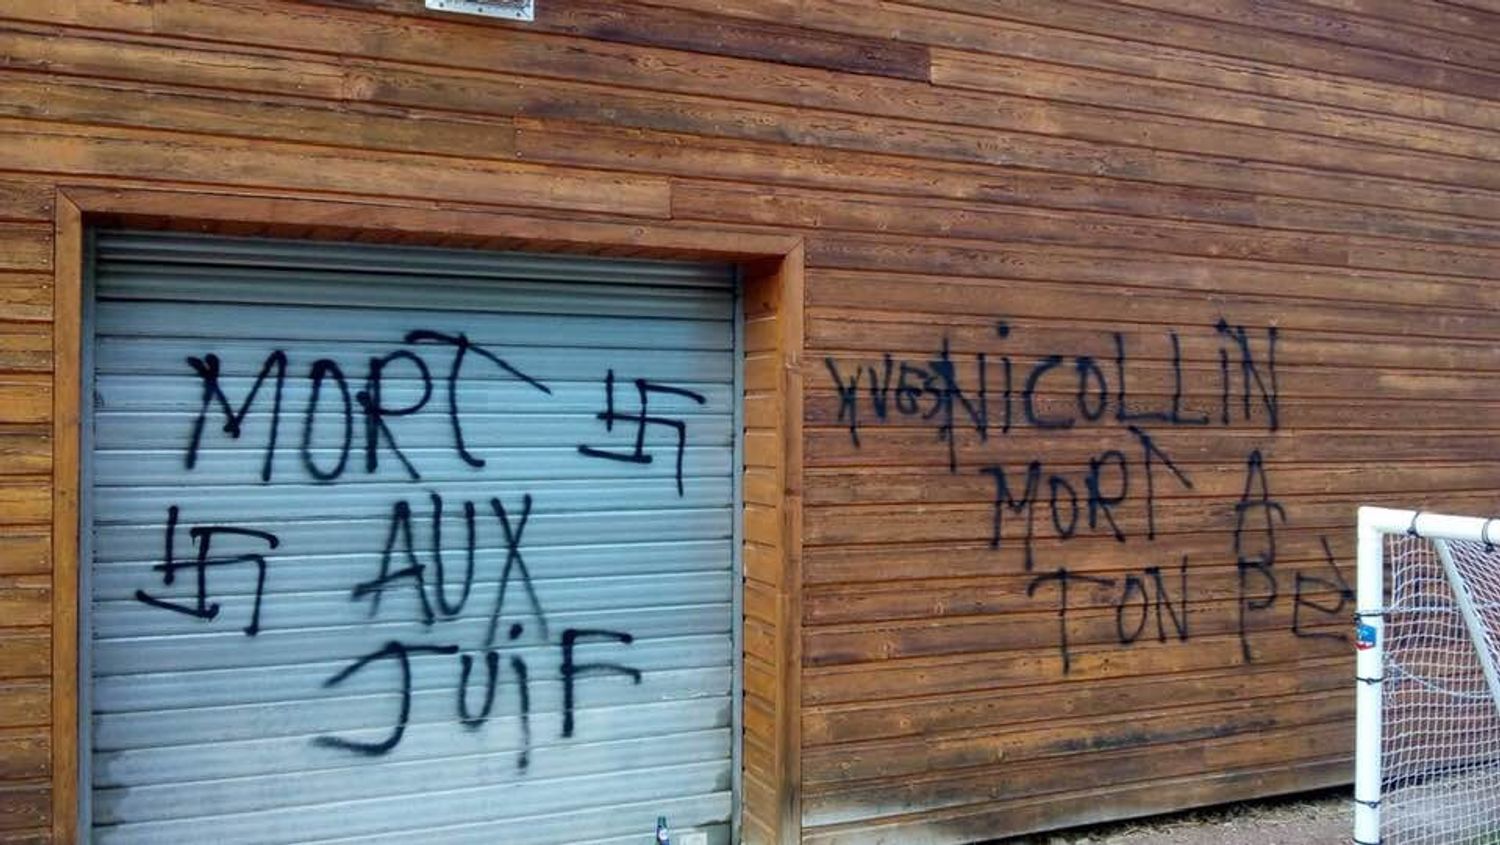 MORT
AUX
JUiF
YVES NiCOLLiN
MORT A
TON PE